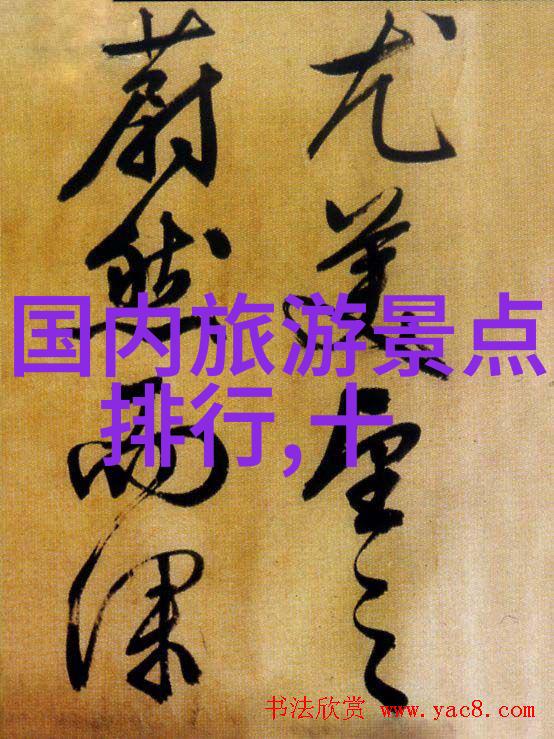 尤美望之
蔚然而深
国内旅游景点
排行,十
书法欣赏 www.yac8.com